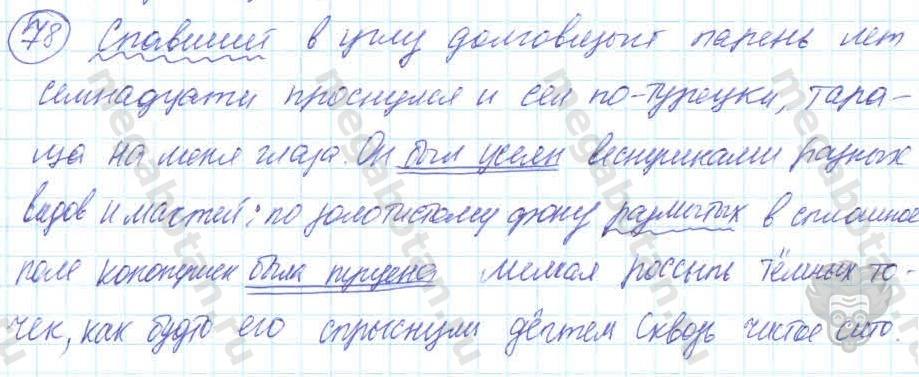 78 Спавший в углу долговязый парень лет
семнадцати проснулся и сел по-турецки, тара-
ща на меня глаза. Он был усеян веснушками разных
видов и мастей: по золотистому фону размытых в сплошное
поле конопушек была пущена мелкая россыпь тёмных то-
чек, как будто его спрыснули дёгтем сквозь чистое сито.
megabotan.ru